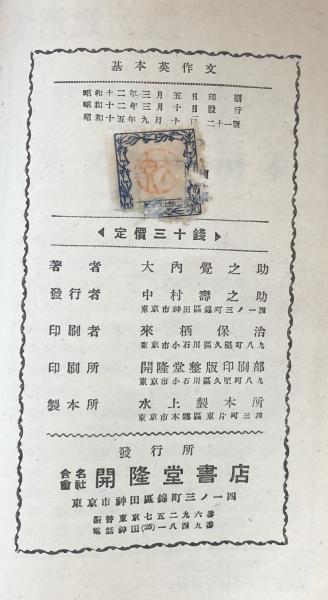 基本英作文
昭和十二年三月五日印刷
昭和十二年三月十日發行
昭和十五年九月十日二十一版
定價三十錢
著者 大內覺之助
發行者 中村壽之助
東京市神田區錦町三ノ一四
印刷者 來栖保治
東京市小石川區久堅町八九
印刷所 開隆堂整版印刷部
東京市小石川區久堅町八九
製本所 水上製本所
東京市本鄕區東片町三四
發行所
合名會社 開隆堂書店
東京市神田區錦町三ノ一四
振替東京七五二九六番
電話神田(25)一八四九番